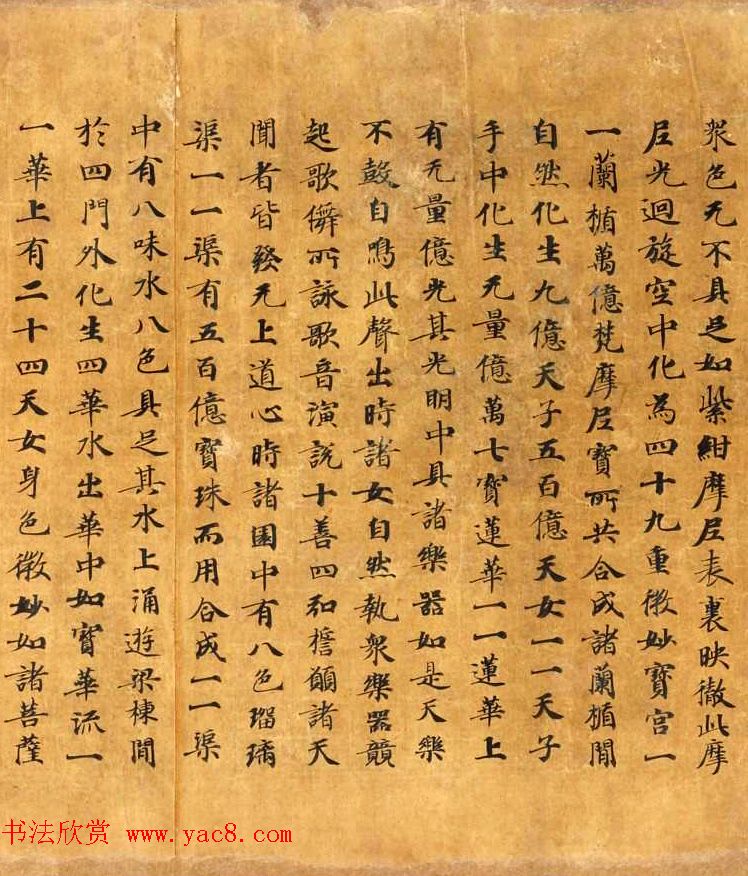 衆色无不具足如紫紺摩尼表裏映徹此摩
尼光迴旋空中化為四十九重微妙寶宮一
一蘭楯萬億梵摩尼寶所共合成諸蘭楯閒
自然化生九億天子五百億天女一一天子
手中化生无量億萬七寶蓮華一一蓮華上
有无量億光其光明中具諸樂器如是天樂
不鼓自鳴此聲出時諸女自然執衆樂器競
起歌儛所詠歌音演説十善四弘誓願諸天
聞者皆發无上道心時諸園中有八色瑠璃
渠一一渠有五百億寶珠而用合成一一渠
中有八味水八色具足其水上涌遊梁棟間
於四門外化生四華水出華中如寶華流一
一華上有二十四天女身色微妙如諸菩薩
书法欣赏 www.yac8.com